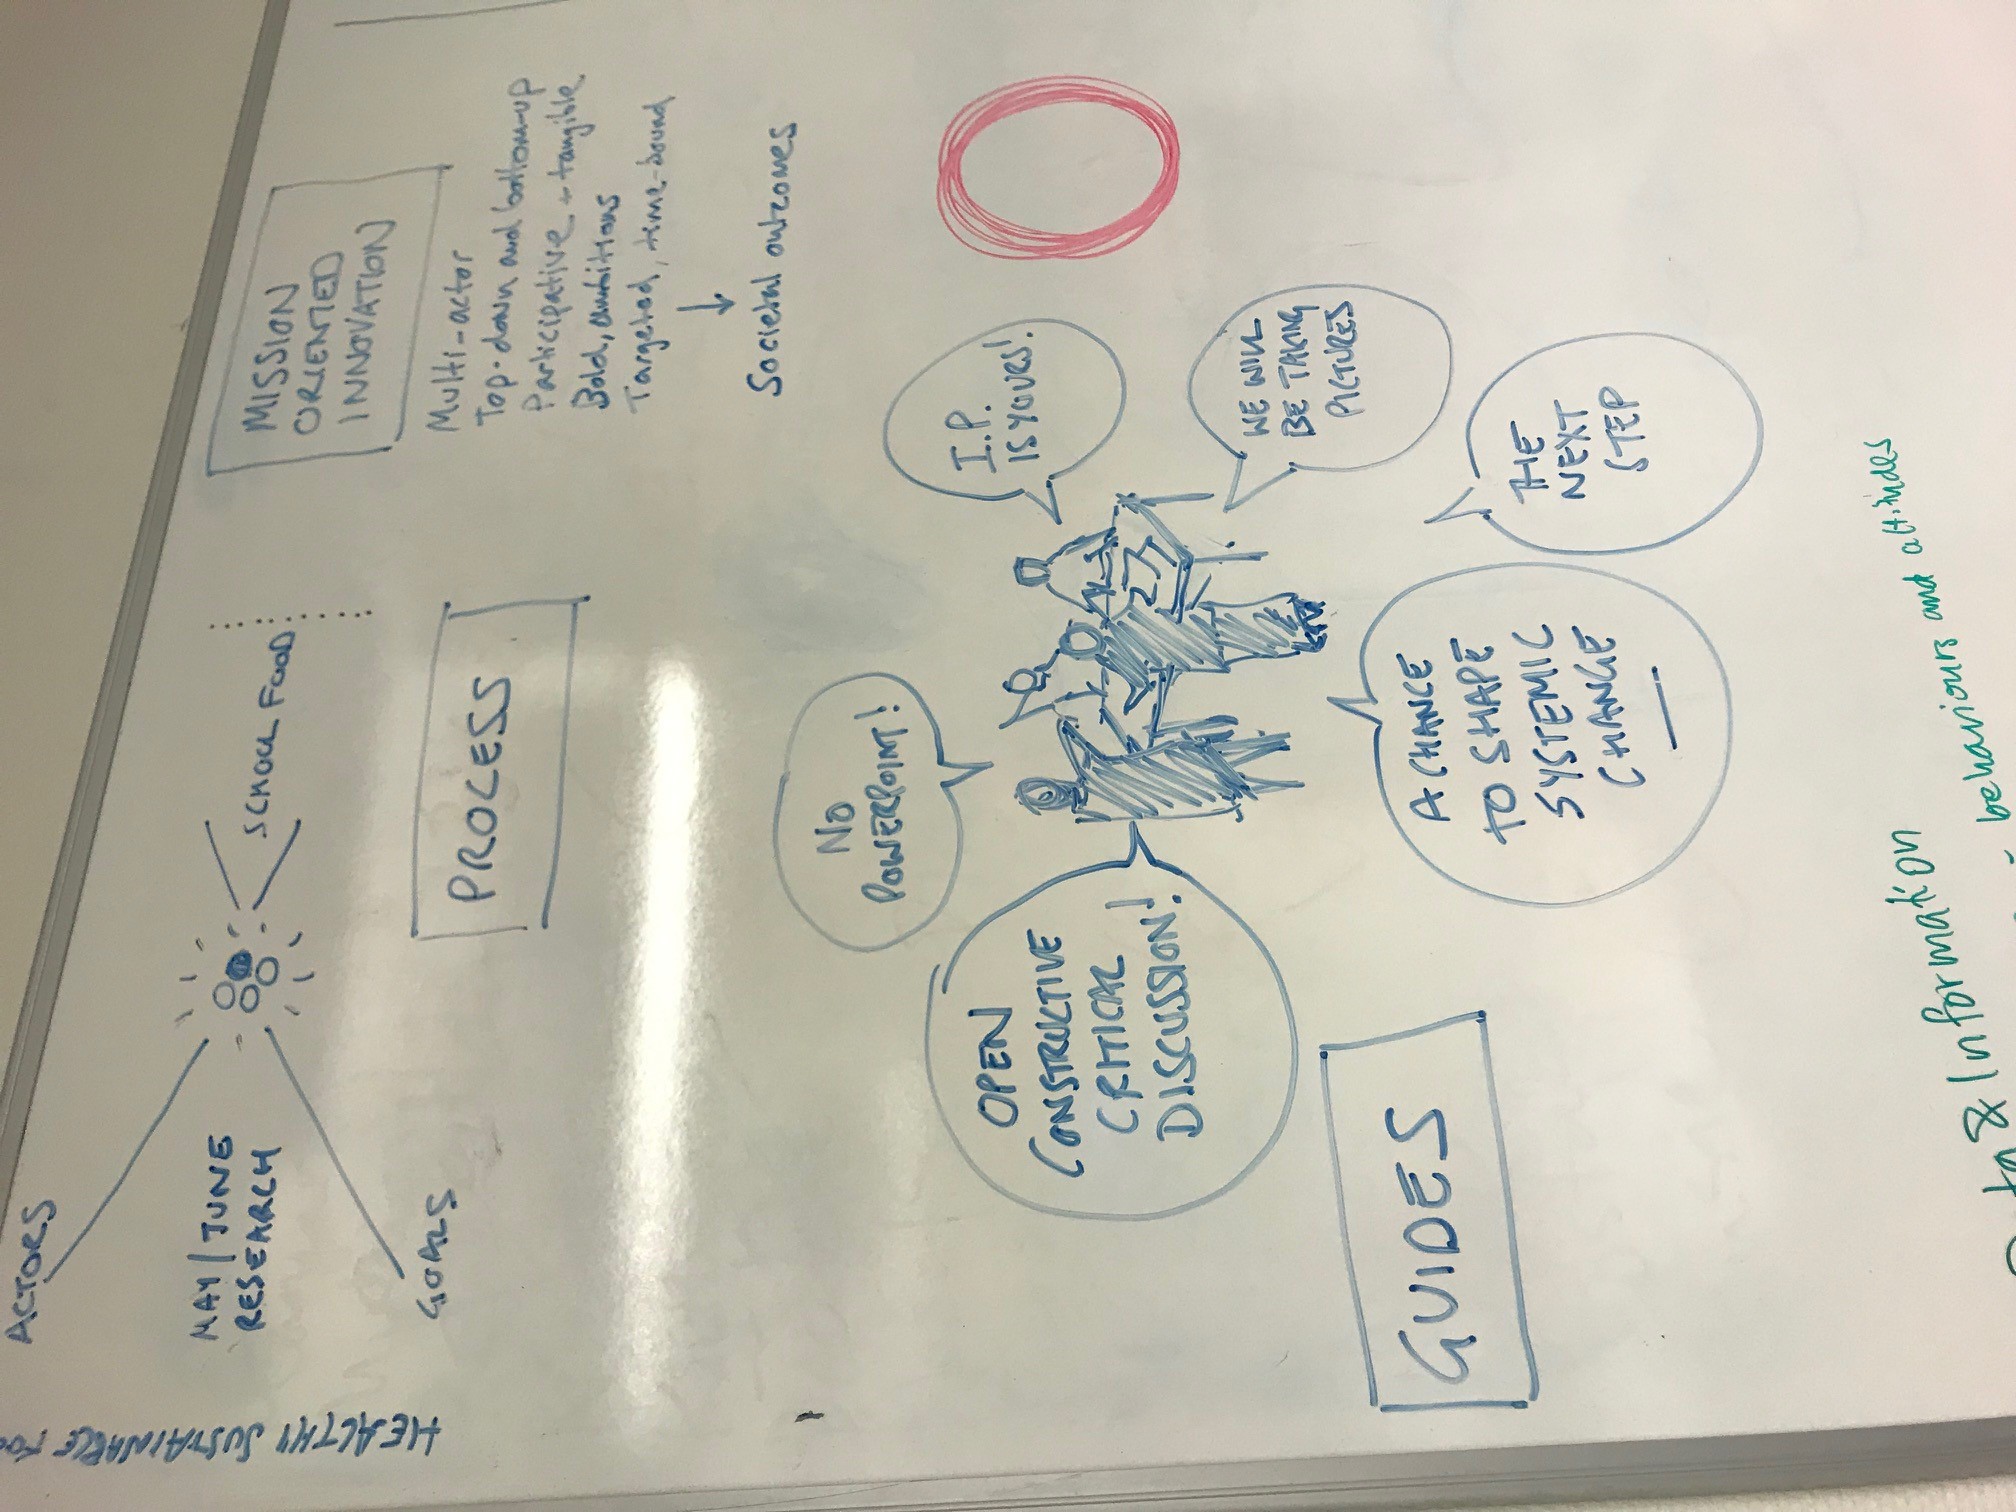 HEALTHY SUSTAINABLE
ACTORS
MAY/JUNE
RESEARCH
GOALS
SCHOOL FOOD
PROCESS
MISSION
ORIENTED
INNOVATION
Multi-actor
Top-down and bottom-up
Participative + tangible
Bold, ambitious
Targeted, time-bound
↓
Societal outcomes
NO
POWERPOINT!
I.P.
IS YOURS!
OPEN
CONSTRUCTIVE
CRITICAL
DISCUSSION!
WE WILL
BE TAKING
PICTURES
A CHANCE
TO SHAPE
SYSTEMIC
CHANGE
THE
NEXT
STEP
GUIDES
& Information
- behaviours and attitudes